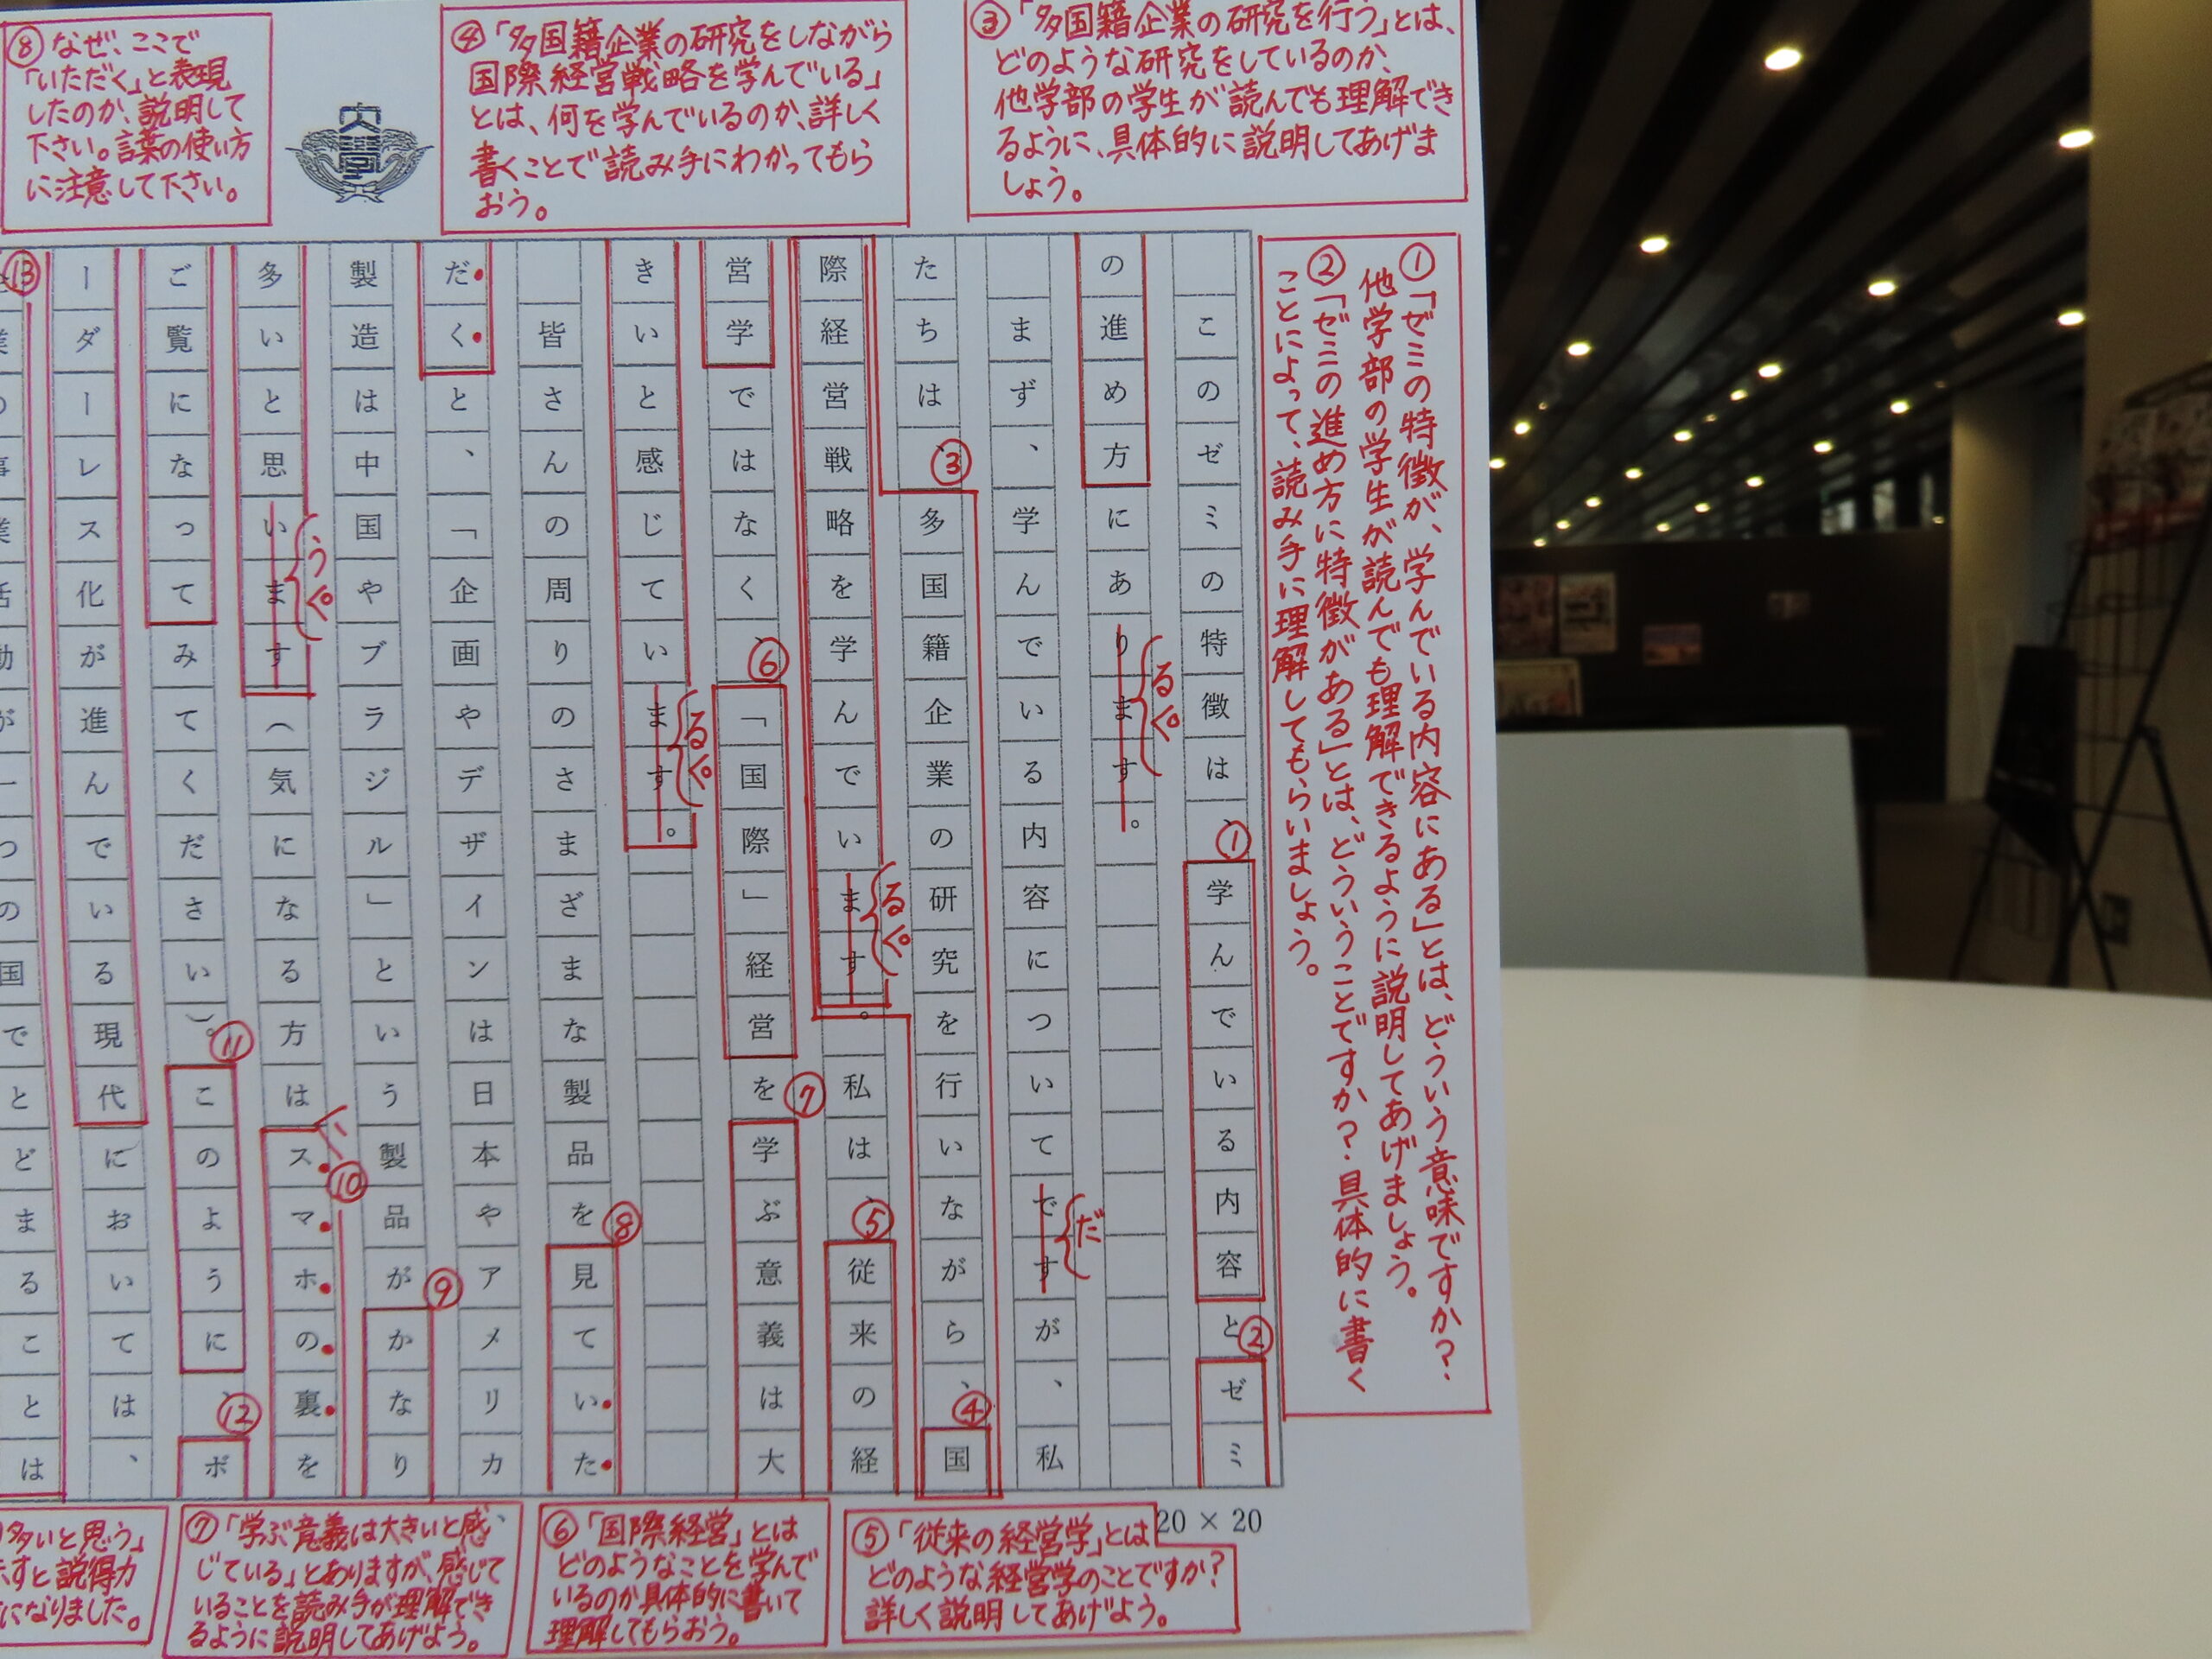 ⑧なぜ、ここで
「いただく」と表現
したのか、説明して
下さい。言葉の使い方
に注意して下さい。
大學
④「多国籍企業の研究をしながら
国際経営戦略を学んでいる」
とは、何を学んでいるのか、詳しく
書くことで読み手にわかってもら
おう。
③「多国籍企業の研究を行う」とは、
どのような研究をしているのか、
他学部の学生が読んでも理解でき
るように、具体的に説明してあげま
しょう。
①「ゼミの特徴が、学んでいる内容にある」とは、どういう意味ですか？
他学部の学生が読んでも理解できるように説明してあげましょう。
②「ゼミの進め方に特徴がある」とは、どういうことですか？具体的に書く
ことによって、読み手に理解してもらいましょう。
このゼミの特徴は、①学んでいる内容と②ゼミ
の進め方にあります。
る。
まず、学んでいる内容についてですが、私
だ
たちは、③多国籍企業の研究を行いながら、④国
際経営戦略を学んでいます。私は、⑤従来の経
る。
営学ではなく、⑥「国際」経営を⑦学ぶ意義は大
きいと感じています。
る。
皆さんの周りのさまざまな製品を⑧見ていた
だくと、「企画やデザインは日本やアメリカ
製造は中国やブラジル」という製品が⑨かなり
多いと思います（気になる方は⑩スマホの裏を
う。
ご覧になってみてください）。⑪このように、⑫ボ
ーダーレス化が進んでいる現代においては、
⑬
業の事業活動が一つの国でとどまることは
多いと思う」
すと説得力
になりました。
⑦「学ぶ意義は大きいと感
じている」とありますが、感じて
いることを読み手が理解でき
るように説明してあげよう。
⑥「国際経営」とは
どのようなことを学んで
いるのか具体的に書いて
理解してもらおう。
⑤「従来の経営学」とは
どのような経営学のことですか？
詳しく説明してあげよう。
20 × 20